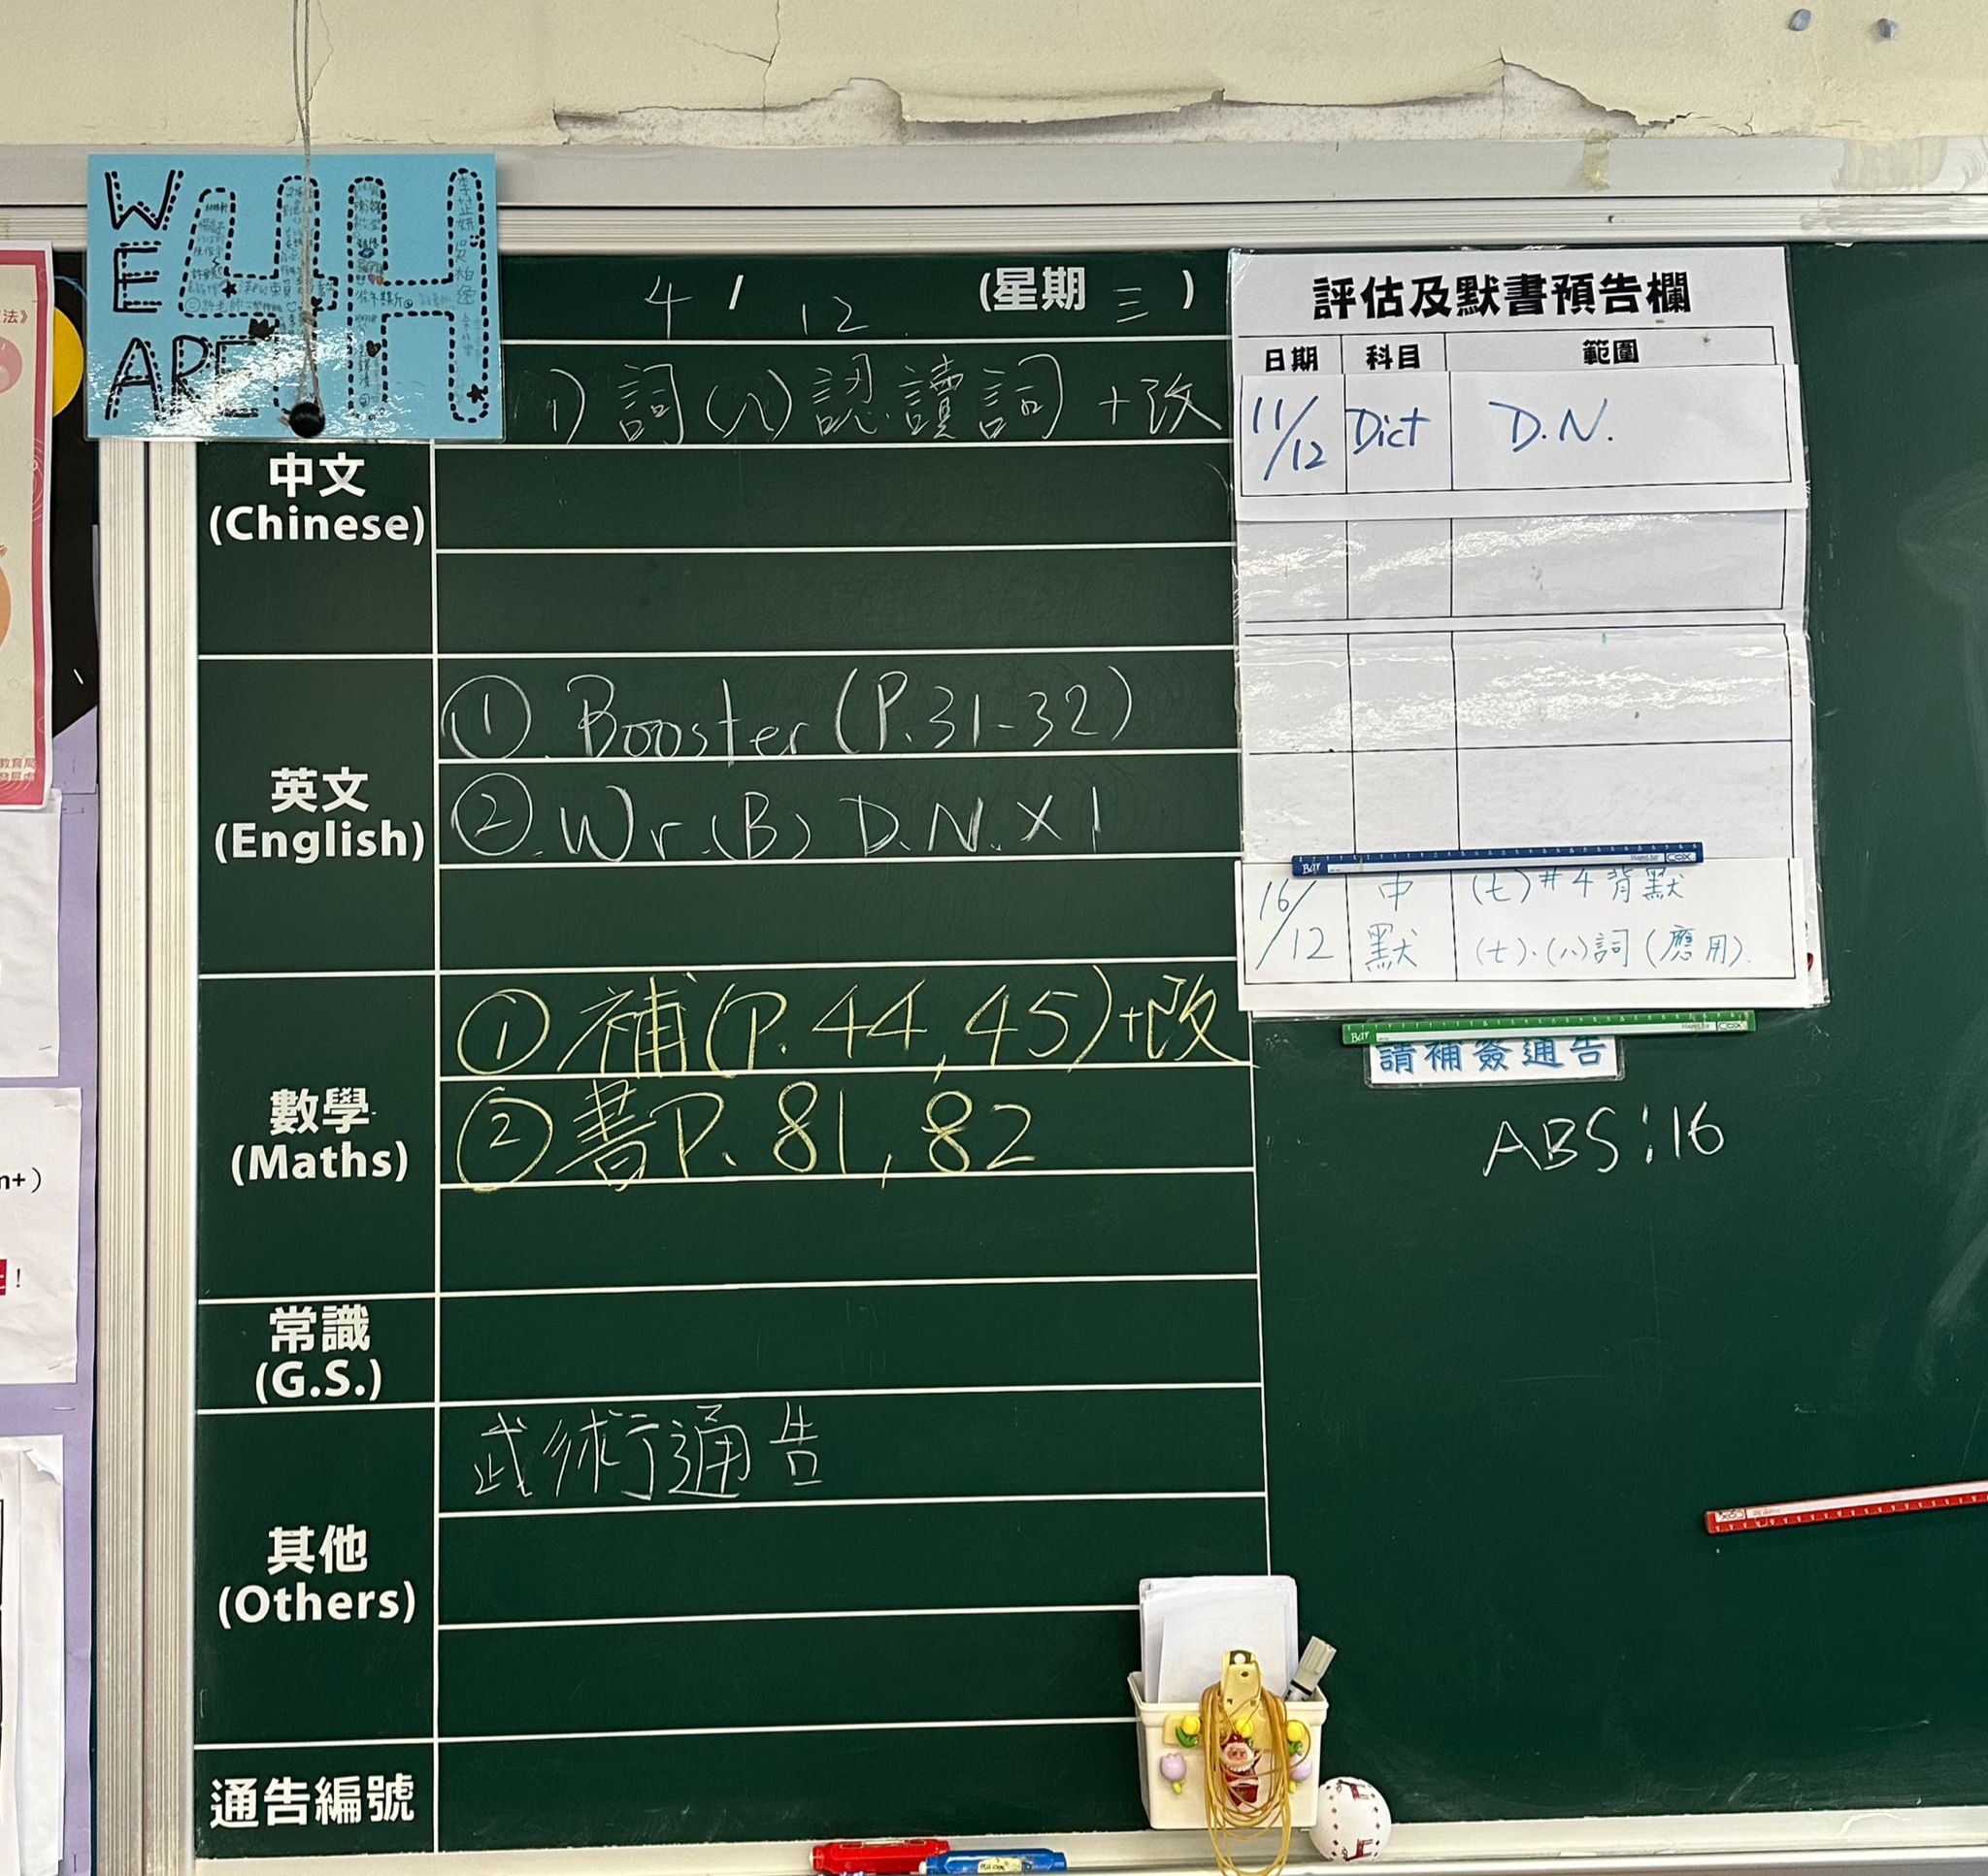 WE ARE 4H
4 / 12 (星期 三 )
1) 詞(八)認讀詞 +改
中文
(Chinese)
英文
(English)
① Booster (P.31-32)
② Wr.(B) D.N. X 1
數學
(Maths)
① 補(P.44,45)+改
② 書P.81,82
常識
(G.S.)
其他
(Others)
武術通告
通告編號
評估及默書預告欄
日期 科目 範圍
11/12 Dict D.N.
16/12 中默 (七)#4背默
(七).(八)詞(應用).
請補簽通告
ABS:16
法》
教育局
n+)
!